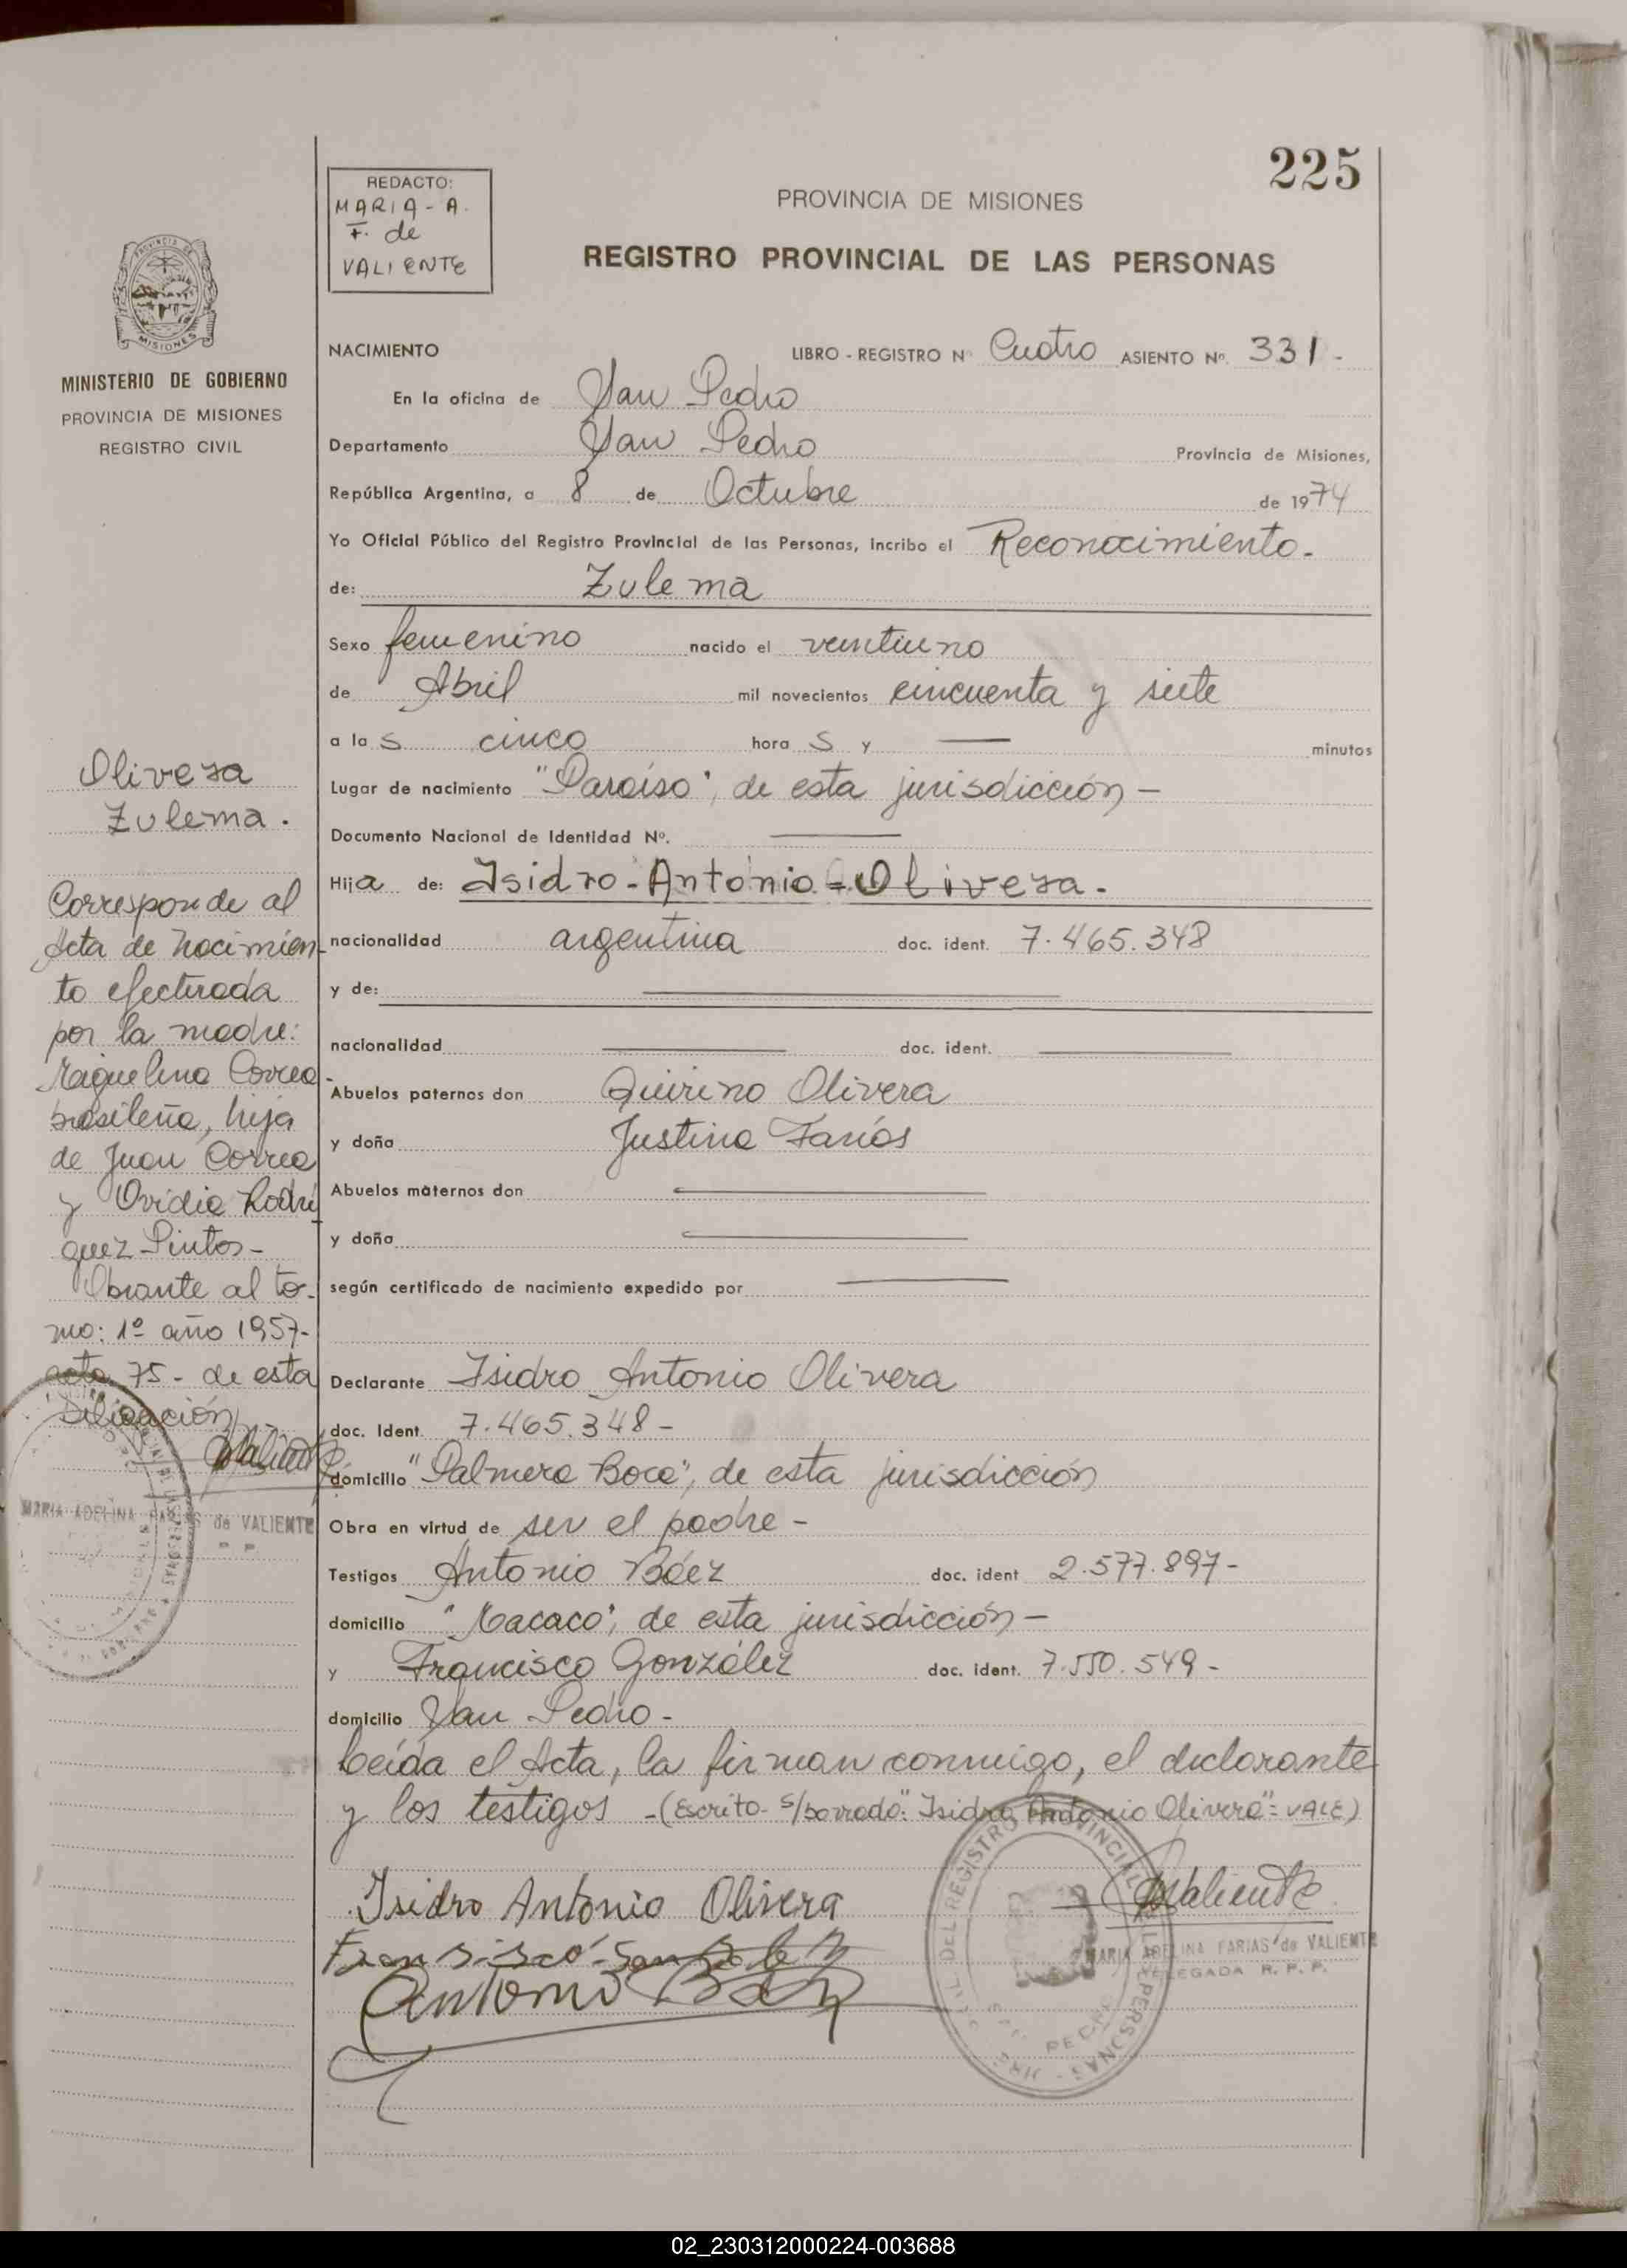 225
REDACTO:
MARIA - A.
F. de
VALIENTE
PROVINCIA DE MISIONES
REGISTRO PROVINCIAL DE LAS PERSONAS
MISIONES
MINISTERIO DE GOBIERNO
PROVINCIA DE MISIONES
REGISTRO CIVIL
NACIMIENTO LIBRO - REGISTRO Nº Cuatro ASIENTO Nº. 331-
En la oficina de San Pedro
Departamento San Pedro Provincia de Misiones,
República Argentina, a 8 de Octubre de 1974
Yo Oficial Público del Registro Provincial de las Personas, incribo el Reconocimiento.
de: Zulema
Sexo femenino nacido el veintiuno
de Abril mil novecientos cincuenta y siete
a las cinco horas y — minutos
Lugar de nacimiento "Paraíso", de esta jurisdicción -
Documento Nacional de Identidad Nº. —
Hija de: Isidro - Antonio - Olivera.
nacionalidad argentina doc. ident. 7.465.348
y de: —
nacionalidad — doc. ident. —
Abuelos paternos don Quirino Olivera
y doña Justina Farías
Abuelos maternos don —
y doña —
según certificado de nacimiento expedido por —
Declarante Isidro Antonio Olivera
doc. Ident. 7.465.348-
domicilio "Palmera Boca", de esta jurisdicción
Obra en virtud de ser el padre -
Testigos Antonio Báez doc. ident 2.577.897-
domicilio "Macaco", de esta jurisdicción -
y Francisco González doc. ident. 7.550.549-
domicilio San Pedro -
Leída el Acta, la firman conmigo, el declarante
y los testigos -(Escrito s/borrado": Isidro Antonio Olivera"= VALE)
Isidro Antonio Olivera
Antonio Báez
Valiente
MARIA ADELINA FARIAS de VALIENTE
DELEGADA R. P. P.
DEL REGISTRO PROVINCIAL
PERSONAS
Olivera
Zulema.
Corresponde al
Acta de Nacimien-
to efectuada
por la madre:
Miguelina Correa
brasileña, hija
de Juan Correa
y Ovidia Rodri
guez Pintos -
Obrante al to-
mo: 1º año 1957-
acta 75 - de esta
Delegación
Valiente
MARIA ADELINA FARIAS de VALIENTE
02_230312000224-003688